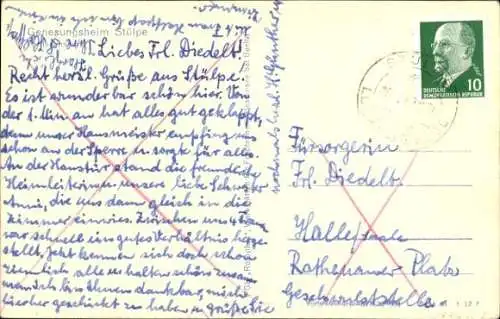 Genesungsheim Stülpe
Liebes Frl. Diedelt.
Recht herzl. Grüße aus Stülpe.
Es ist wunderbar schön hier. Von
der 1. Min an hat alles gut geklappt,
denn unser Hausmeister empfing uns
schon an der Sperre u. sorgte für alles.
An der Haustür stand die freundliche
Heimleiterin, unsere liebe Schwester
Anni, die uns dann gleich in die
Zimmer einwies. Zwischen uns
war schnell ein gutes Verhältnis herge-
stellt. Jetzt kennen sich doch schon
ziemlich alle u. halten schön zusam-
men. Ich bin Ihnen dankbar, mich
hierher geschickt zu haben u. grüße Sie
nochmals herzl.
DEUTSCHE
DEMOKRATISCHE REPUBLIK
10
Fürsorgerin
Frl. Diedelt.
Halle/Saale
Rathenauer Platz
Geschwulststelle